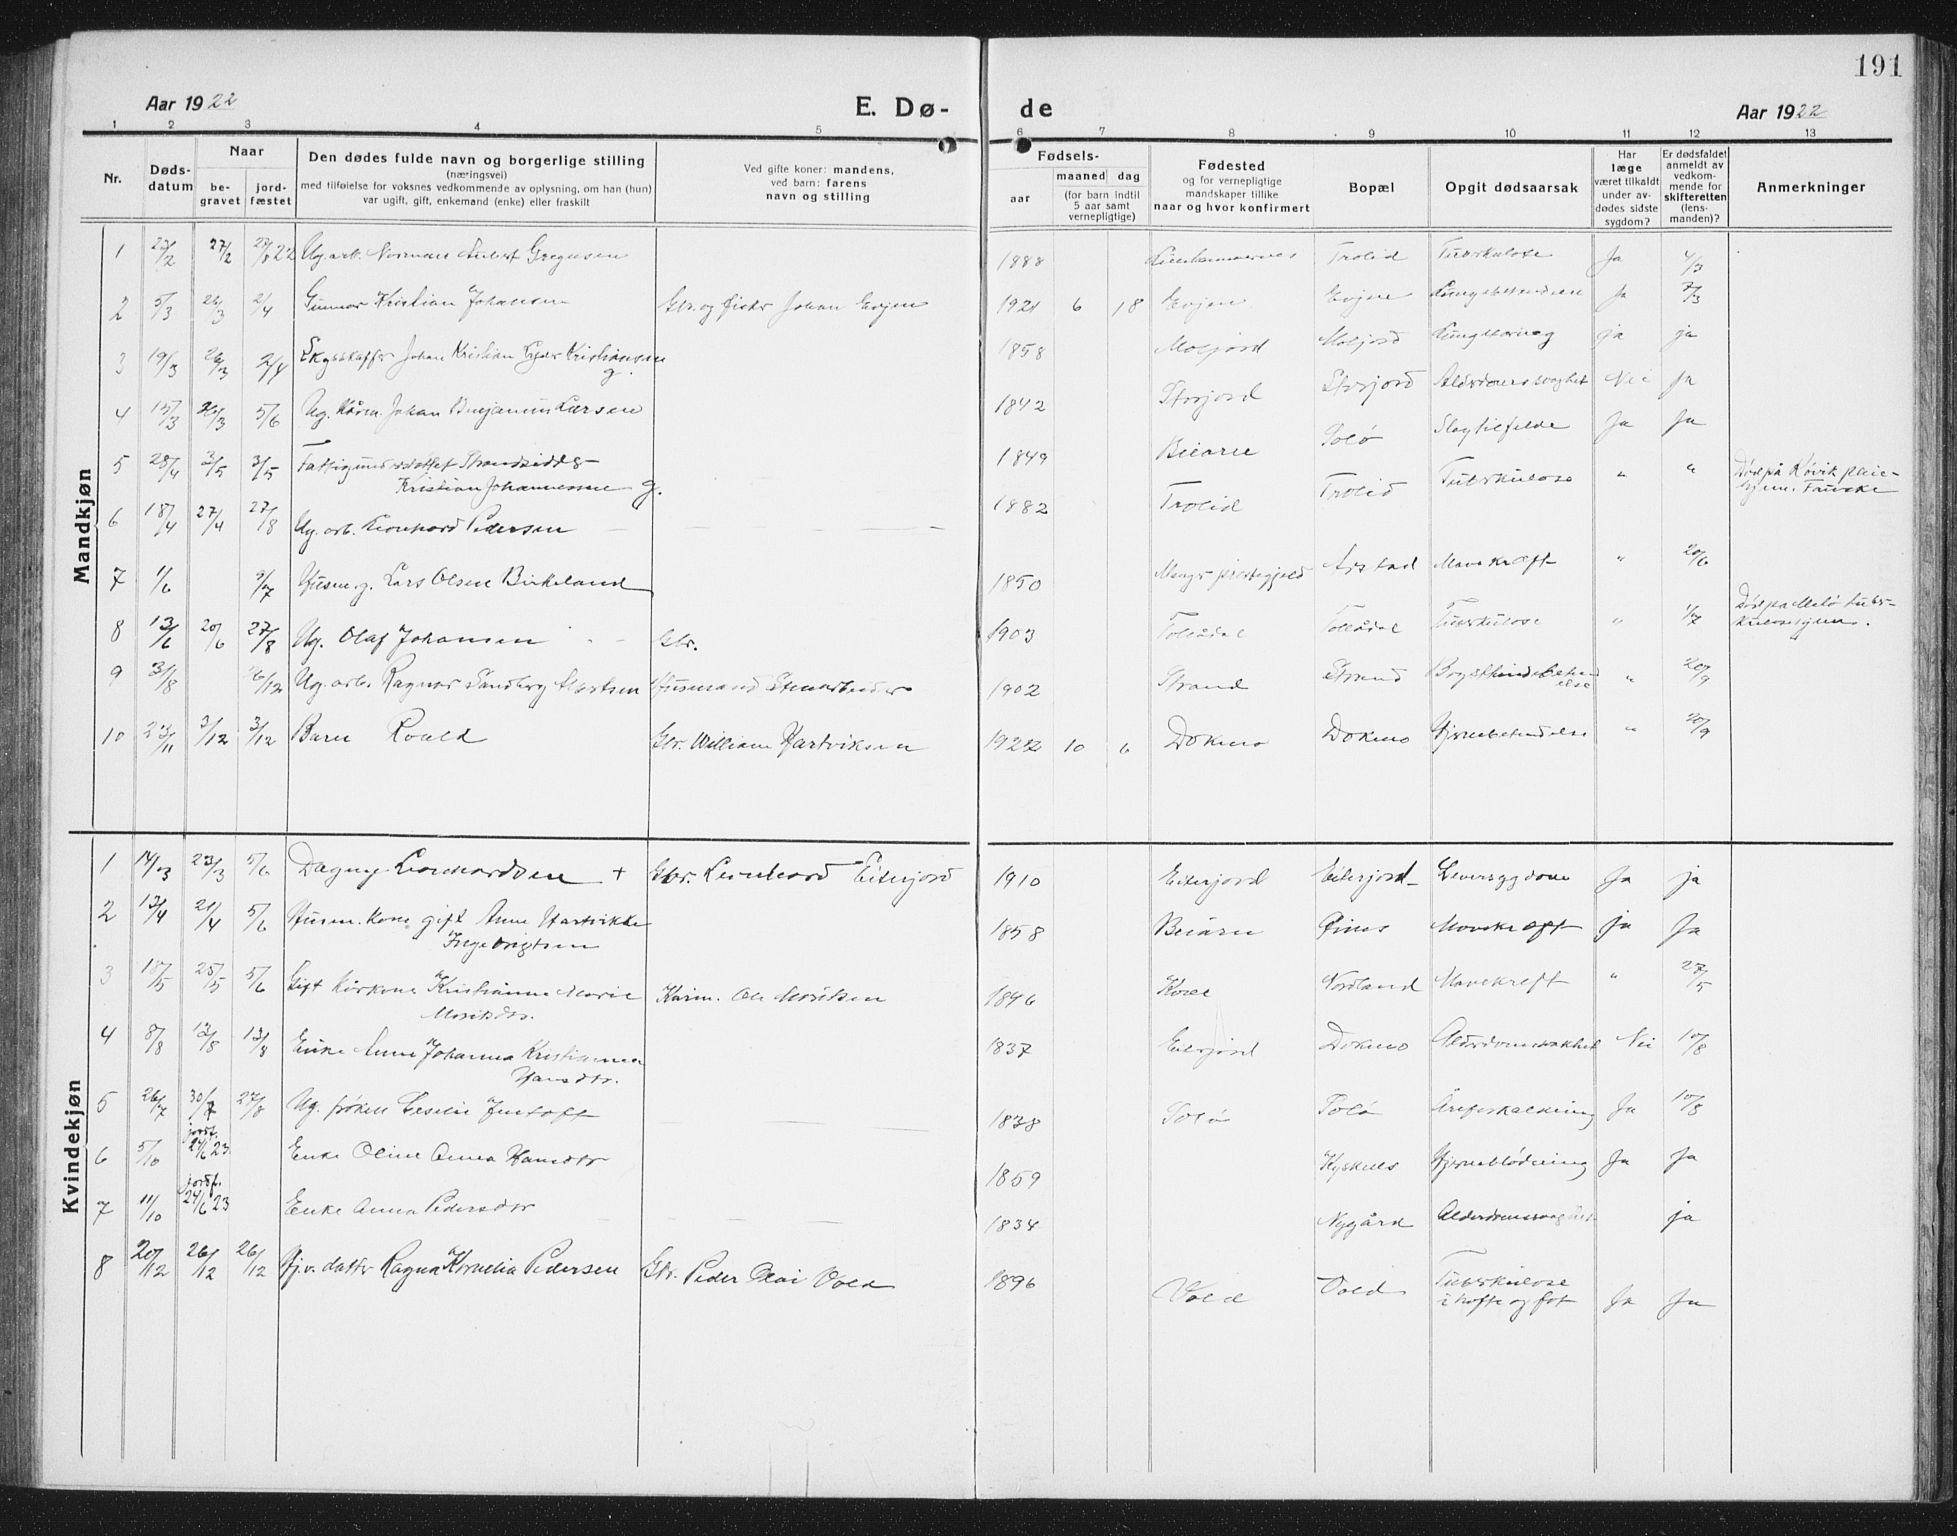 191
Aar 1922 E. Dø- de Aar 1922
1 2 3 4 5 6 7 8 9 10 11 12 13
Nr.
Døds-
datum
Naar
be-
gravet
jord-
fæstet
Den dødes fulde navn og borgerlige stilling
(næringsvei)
med tilføielse for voksnes vedkommende av oplysning, om han (hun)
var ugift, gift, enkemand (enke) eller fraskilt
Ved gifte koner: mandens,
ved barn: farens
navn og stilling
Fødsels-
aar
maaned dag
(for barn indtil
5 aar samt
vernepligtige)
Fødested
og for vernepligtige
mandskaper tillike
naar og hvor konfirmert
Bopæl
Opgit dødsaarsak
Har
læge
været tilkaldt
under av-
dødes sidste
sygdom?
Er dødsfaldet
anmeldt av
vedkom-
mende for
skifteretten
(lens-
manden)?
Anmerkninger
Mandkjøn
1 27/2 27/2 Ug. arb. Norman 1888 Trolid Tuberkulose Ja 4/3
2 5/3 26/3 2/4 Gunnar Kristian Johansen Gbr. og fisker Johan Evjen 1921 6 18 Evjen Evjen Lungebetendelse Ja 7/3
3 19/3 26/3 2/4 Skysskaffer Johan Kristian Kristiansen g. 1858 Moljord Moljord ja ja
4 15/3 26/3 5/6 Ug. Johan Benjamin Larsen 1842 Storjord Storjord Alderdomssvaghet Nei Ja
5 28/4 3/5 3/5 Fattigunderstøttet Strandsidder
Kristian Johannessen g. 1849 Beiarn Solø Slagtilfelde Ja Ja
6 18/4 27/4 27/8 Ug. arb. Leonhard Pedersen 1882 Trolid Trolid Tuberkulose " " Død på Røvik pleie-
hjem, Fauske
7 1/6 9/7 Husm. g. Lars Olsen Birkeland 1850 prestegjeld Arstad Mavekræft " 20/6
8 13/6 20/6 27/8 Ug. Olaf Johansen Gbr. 1903 Tollådal Tollådal Tuberkulose " 1/7 Død på Melø tuber-
kulosehjem.
9 31/8 Ug. arb. Ragnar Sandberg Husmand Stenarbeider 1902 Strand Strand " 20/9
10 23/11 3/12 3/12 Barn Roald Gbr. William Hartviksen 1922 10 6 Dokmo Dokmo Hjernebetendelse " 20/9
Kvindekjøn
1 14/3 23/3 5/6 Dagny Leonhardsen + Gbr. Leonhard Eiterjord 1910 Eiterjord Eiterjord Leversygdom Ja ja
2 13/4 21/4 5/6 Husm. kone gift Anne Hartvikke
Ingebrigtsen 1858 Beiarn Øines Mavekræft ja Ja
3 18/5 25/5 5/6 Gift Kårkone Kristianna Marie
Moritsdtr. Kårm. Ole Moritsen 1846 Nordland Mavekreft " 27/5
4 8/8 13/8 13/8 Enke Anne Johanna Kristianna
Hansdtr. 1837 Eiterjord Dokmo Nei 10/8
5 26/7 30/7 27/8 Ug. frøken Cesilie Jentoft 1838 Solø Solø Ja 10/8
6 5/10 jordf.
24/6 23 Enke Oline Anna Hansdtr 1859 Hjerneblødning Ja Ja
7 11/10 jordf.
24/6 23 Enke Anna Pedersdtr 1834 Nygård Alderdomssvaghet ja
8 20/12 26/12 26/12 Gj.v. datter Ragna Kornelia Pedersen Gbr. Peder Olai Vold 1896 Vold Vold Tuberkulose
i hofte og fot Ja Ja